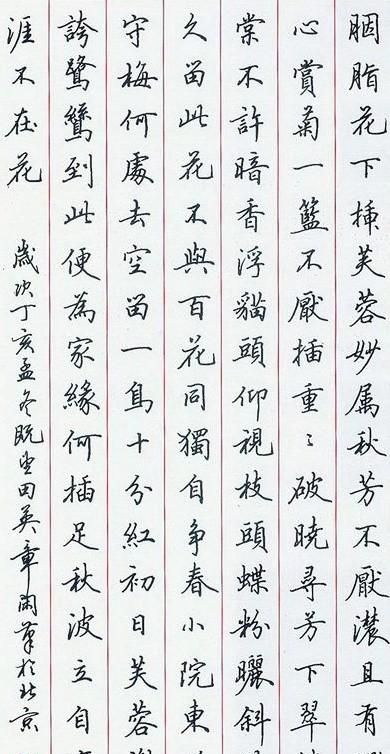 胭脂花下插芙蓉妙属秋芳不厭濃且有
心賞菊一籃不厭插重〻破曉尋芳下翠
棠不許暗香浮貓頭仰視枝頭蝶粉曬斜
久留此花不與百花同獨自争春小院東
守梅何處去空留一鳥十分紅初日芙蓉
誇鷺鷥到此便為家緣何插足秋波立自
涯不在花
歲次丁亥孟冬既望田英章閑筆於北京